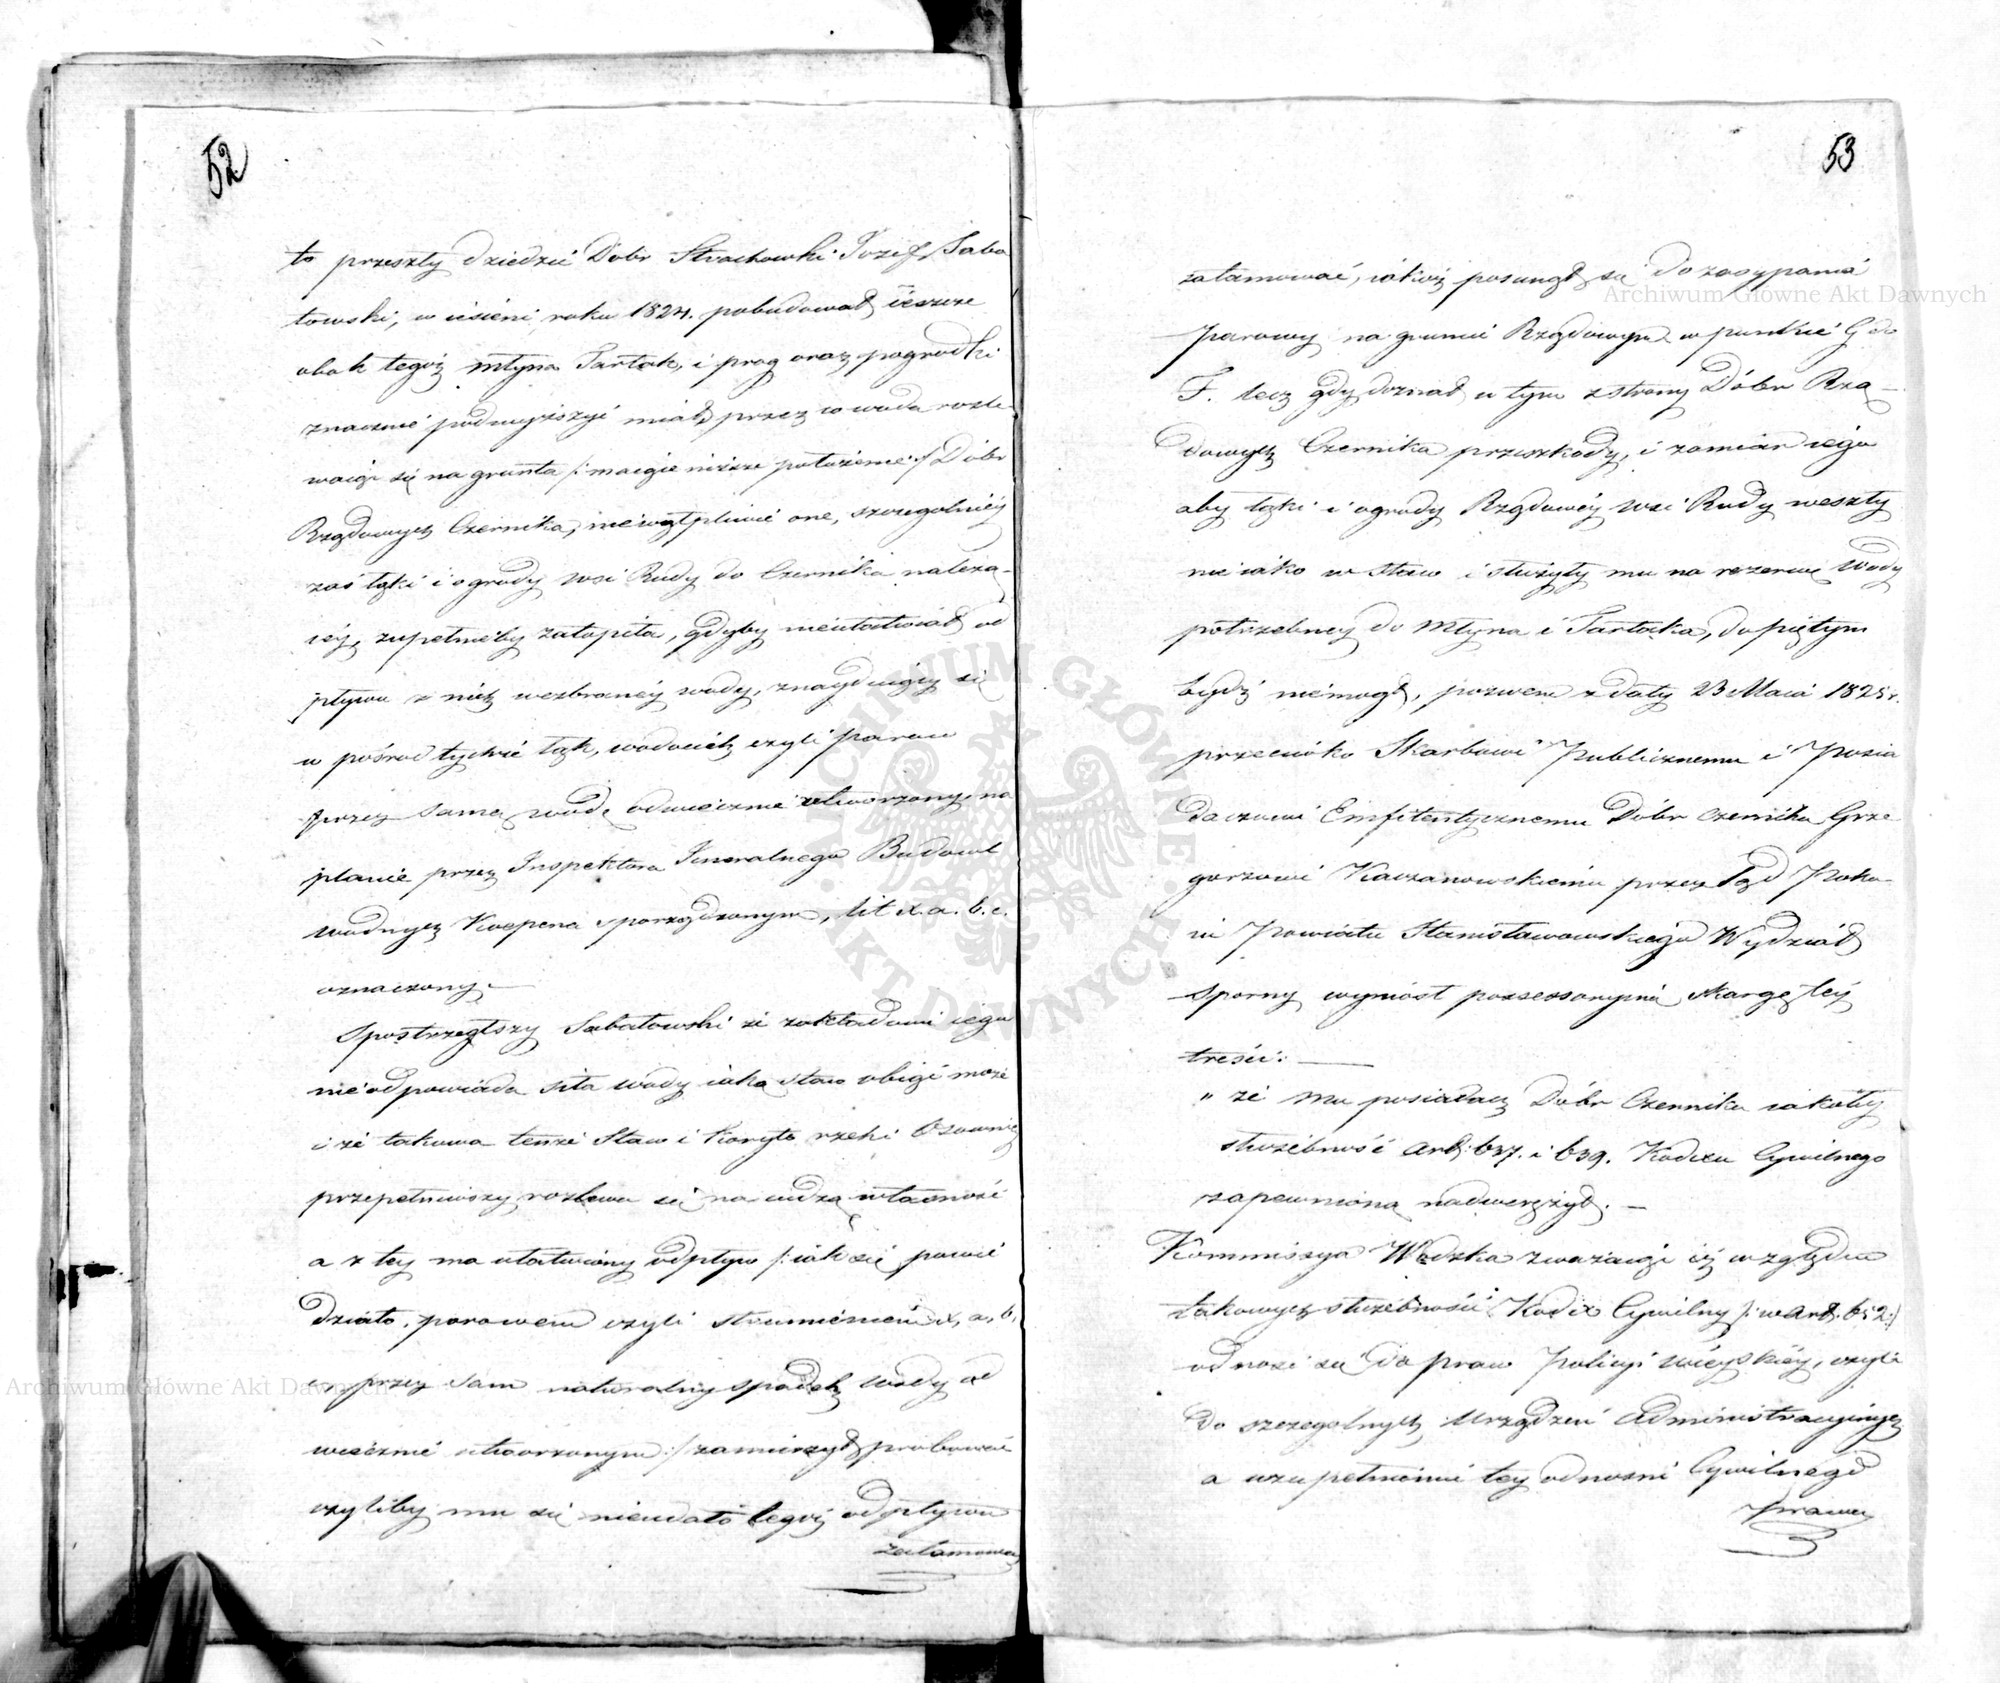 52
to przeszły dziedzic Dobr Strachowki Jozef Saba
towski, w iesieni roku 1824. pobudował ieszcze
obok tegoż młyna Tartak, i prog oraz pogrodki
znacznie podwyższyć miał, przez co woda rozle-
waiąc się na grunta /: maiące niższe położenie :/ Dobr
Rządowych Czernika, niewątpliwie one, szczegolniéy
zaś łąki i ogrody wsi Rudy do Czernika należą-
céy, zupełnieby zatopiła, gdyby nieułatwiał od
pływu z nich wezbranéy wody, znayduiący się
w pośrod tychże łąk, wodociek czyli parow
przez samą wodę odwiecznie utworzony, na
planie przez Inspektora Jeneralnego Budowl
wodnych Koepena sporządzonym, lit x. a. b. c.
oznaczony. —
Spostrzegłszy Sabatowski że zakładowi iego
nie odpowiada siła wody iaką staw obiąć może
i że takowa tenże Staw i Koryto rzeki Osownicy
przepełniwszy rozlewa się na cudzą własność
a z tey ma ułatwiony odpływ /: iak się powie
działo, parowem czyli strumieniem x, a, b,
c, przez sam naturalny spadek wody od
wiecznie utworzonym :/ zamierzył probować
czyliby mu się nieudało tegoż odpływu
zatamować
53
zatamować, iakoż posunął się do zasypania
parowy na gruncie Rządowym w punkcie G do
F. lecz gdy doznał w tym z strony Dóbr Rzą-
dowych Czernika przeszkody, i zamiar iego
aby łąki i ogrody Rządowéy wsi Rudy weszły
nieiako w staw i służyły mu na rezerwę wody
potrzebney do Młyna i Tartaka, dopiętym
bydź niemogł, pozwem z daty 23 Maia 1825 r.
przeciwko Skarbowi Publicznemu i Posia
daczowi Emfiteutycznemu Dóbr Czernika Grze
gorzowi Kaczanowskiemu przez Sąd Poko-
iu Powiatu Stanisławowskiego Wydział
Sporny wyniosł possessoryiną skargę téy
treści: —
" że mu posiadacz Dóbr Czernika iakoby
służebność art: 637. i 639. Kodexu Cywilnego
zapewnioną nadwerężył. —
Kommissya Wdzka zważaiąc iż względem
takowych służebności Kodex Cywilny /: w art. 652 :/
odnosi się do praw Policyi wieyskiéy, czyli
do szczegolnych Urządzeń Administracyinych
a uzupełnienie téy odnośni Cywilnego
Prawa
Archiwum Główne Akt Dawnych
Archiwum Główne Akt Dawnych
ARCHIWUM GŁÓWNE AKT DAWNYCH